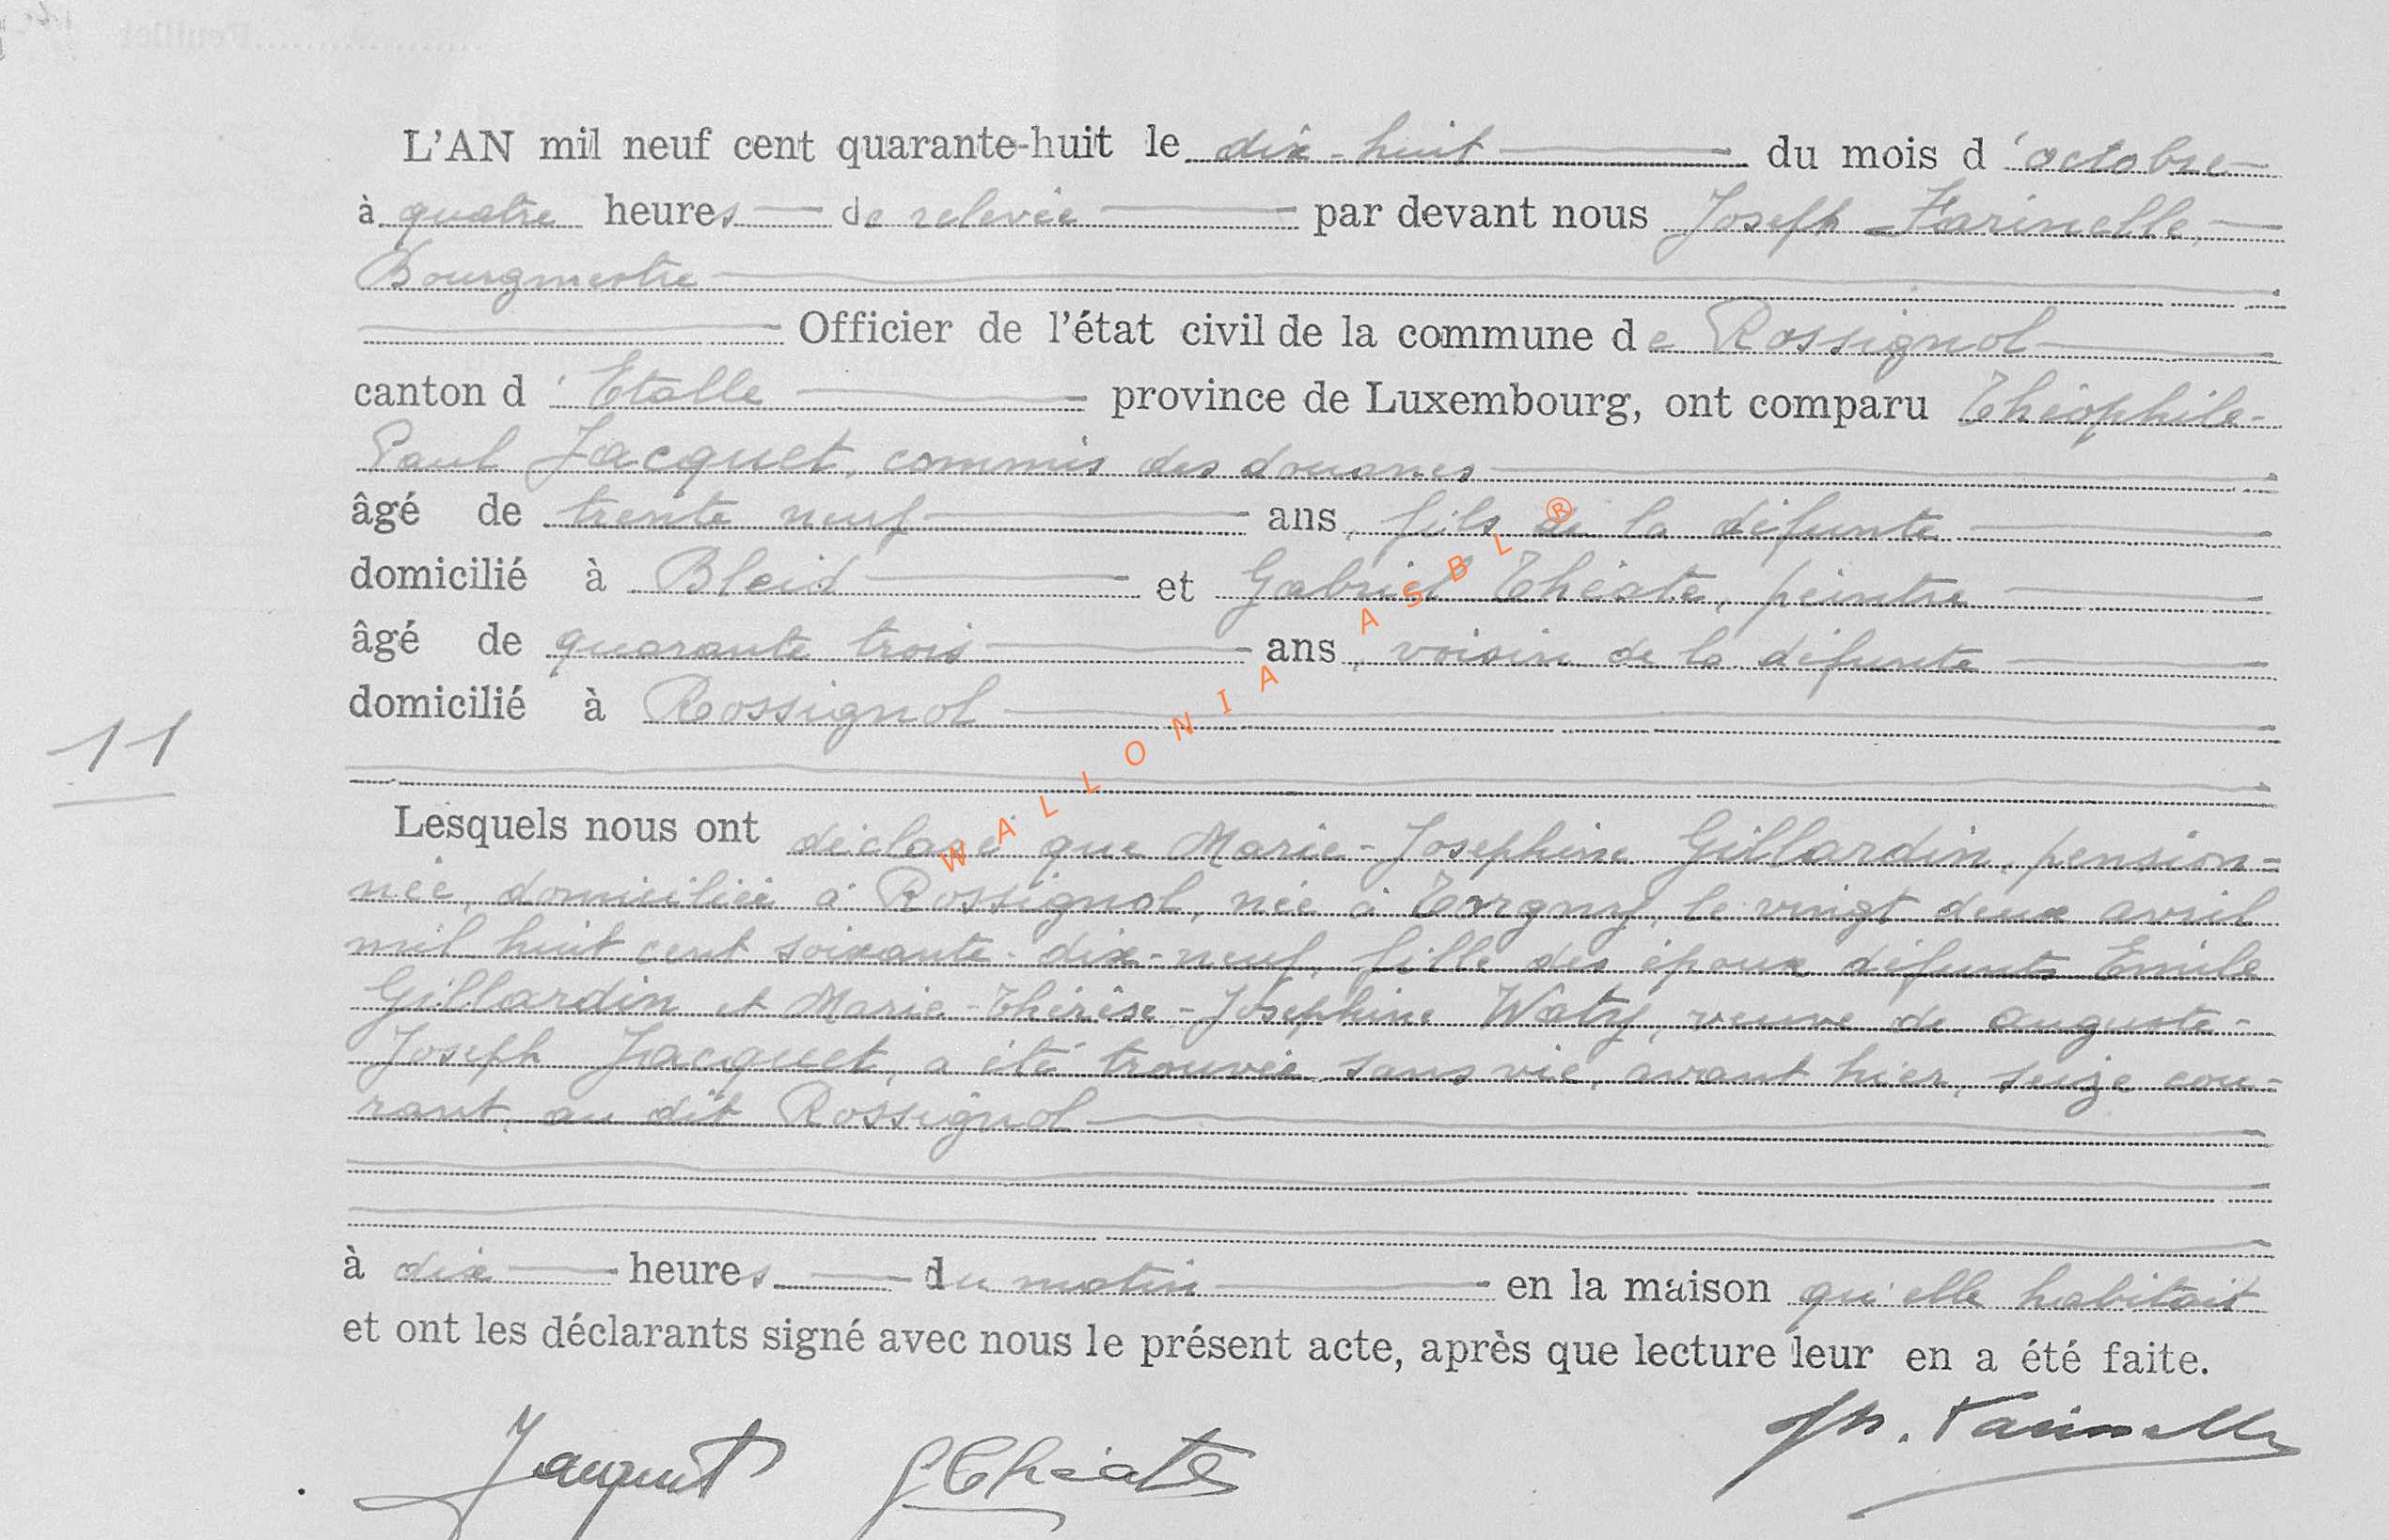 L'AN mil neuf cent quarante-huit le dix-huit du mois d'octobre
à quatre heures de relevée par devant nous Joseph Farinelle,
Bourgmestre
Officier de l'état civil de la commune de Rossignol
canton d'Etalle province de Luxembourg, ont comparu Théophile-
Paul Jacquet, commis des douanes
âgé de trente neuf ans, fils de la défunte
domicilié à Bleid et Gabriel Théate, peintre
âgé de quarante trois ans, voisin de la défunte
domicilié à Rossignol
11
Lesquels nous ont déclaré que Marie-Joséphine Gillardin, pension=
née, domiciliée à Rossignol, née à Torgny, le vingt deux avril
mil huit cent soixante-dix-neuf, fille des époux défunts Emile
Gillardin et Marie-Thérèse-Joséphine Waty, veuve de Auguste-
Joseph Jacquet, a été trouvée sans vie, avant hier, seize cou=
rant, au dit Rossignol
à dix heures du matin en la maison qu'elle habitait
et ont les déclarants signé avec nous le présent acte, après que lecture leur en a été faite.
Jacquet G Théate Jh. Farinelle
WALLONIA ASBL ®